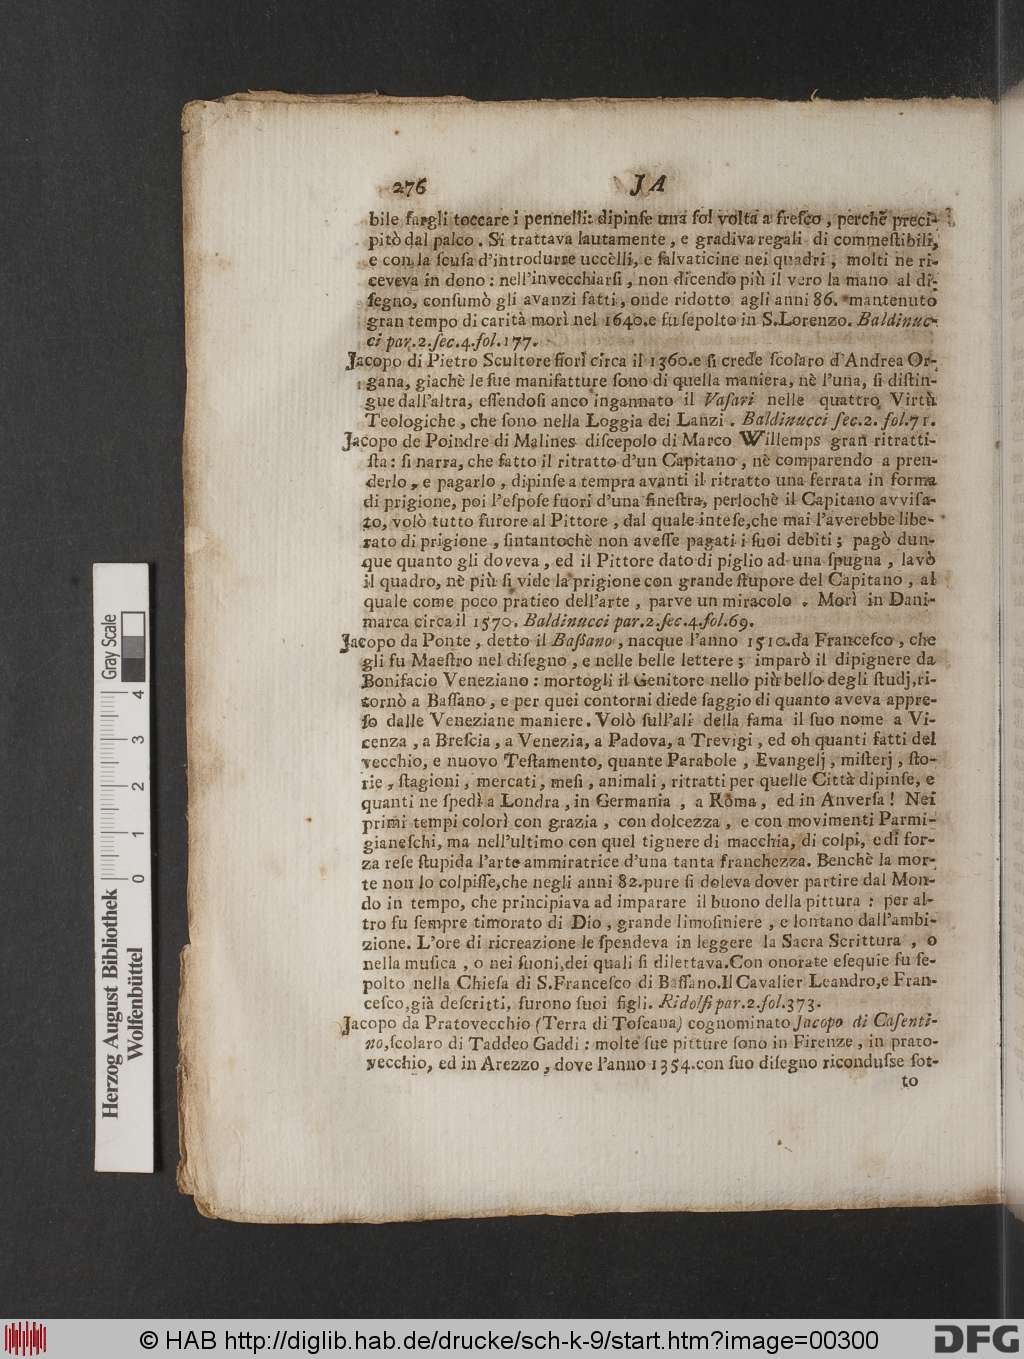 276 JA
bile fargli toccare i pennelli: dipinſe una ſol volta a freſco, perchè preci-
pitò dal palco. Si trattava lautamente, e gradiva regali di commeſtibili,
e con la ſcuſa d'introdurre uccelli, e ſalvaticine nei quadri, molti ne ri-
ceveva in dono: nell'invecchiarſi, non dicendo più il vero la mano al di-
ſegno, conſumò gli avanzi fatti, onde ridotto agli anni 86. mantenuto
gran tempo di carità morì nel 1640.e fu ſepolto in S.Lorenzo. Baldinuc-
ci par.2.ſec.4.fol.177.
Jacopo di Pietro Scultore fiorì circa il 1360.e ſi crede ſcolaro d'Andrea Or-
gana, giachè le ſue manifatture ſono di quella maniera, nè l'una, ſi diſtin-
gue dall'altra, eſſendoſi anco ingannato il Vaſari nelle quattro Virtù
Teologiche, che ſono nella Loggia dei Lanzi. Baldinucci ſec.2. fol.71.
Jacopo de Poindre di Malines diſcepolo di Marco Willemps gran ritratti-
ſta: ſi narra, che fatto il ritratto d'un Capitano, nè comparendo a pren-
derlo, e pagarlo, dipinſe a tempra avanti il ritratto una ferrata in forma
di prigione, poi l'eſpoſe fuori d'una fineſtra, perlochè il Capitano avviſa-
to, volò tutto furore al Pittore, dal quale inteſe,che mai l'averebbe libe-
rato di prigione, ſintantochè non aveſſe pagati i ſuoi debiti; pagò dun-
que quanto gli doveva, ed il Pittore dato di piglio ad una ſpugna, lavò
il quadro, nè più ſi vide la prigione con grande ſtupore del Capitano, al
quale come poco pratico dell'arte, parve un miracolo. Morì in Dani-
marca circa il 1570. Baldinucci par.2.ſec.4.fol.69.
Jacopo da Ponte, detto il Baſſano, nacque l'anno 1510.da Franceſco, che
gli fu Maeſtro nel diſegno, e nelle belle lettere; imparò il dipignere da
Bonifacio Veneziano: mortogli il Genitore nello più bello degli ſtudj,ri-
tornò a Baſſano, e per quei contorni diede ſaggio di quanto aveva appre-
ſo dalle Veneziane maniere. Volò ſull'ali della fama il ſuo nome a Vi-
cenza, a Breſcia, a Venezia, a Padova, a Trevigi, ed oh quanti fatti del
vecchio, e nuovo Teſtamento, quante Parabole, Evangelj, miſterj, ſto-
rie, ſtagioni, mercati, meſi, animali, ritratti per quelle Città dipinſe, e
quanti ne ſpedì a Londra, in Germania, a Roma, ed in Anverſa! Nei
primi tempi colorì con grazia, con dolcezza, e con movimenti Parmi-
gianeſchi, ma nell'ultimo con quel tignere di macchia, di colpi, e di for-
za reſe ſtupida l'arte ammiratrice d'una tanta franchezza. Benchè la mor-
te non lo colpiſſe,che negli anni 82.pure ſi doleva dover partire dal Mon-
do in tempo, che principiava ad imparare il buono della pittura: per al-
tro fu ſempre timorato di Dio, grande limoſiniere, e lontano dall'ambi-
zione. L'ore di ricreazione le ſpendeva in leggere la Sacra Scrittura, o
nella muſica, o nei ſuoni,dei quali ſi dilettava.Con onorate eſequie fu ſe-
polto nella Chieſa di S.Franceſco di Baſſano.Il Cavalier Leandro,e Fran-
ceſco,già deſcritti, furono ſuoi figli. Ridolfi par.2.fol.373.
Jacopo da Pratovecchio (Terra di Toſcana) cognominato Jacopo di Caſenti-
no,ſcolaro di Taddeo Gaddi: molte ſue pitture ſono in Firenze, in prato-
vecchio, ed in Arezzo, dove l'anno 1354.con ſuo diſegno riconduſse ſot-
to
Herzog August Bibliothek
Wolfenbüttel
Gray Scale
0 1 2 3 4
© HAB http://diglib.hab.de/drucke/sch-k-9/start.htm?image=00300
DFG